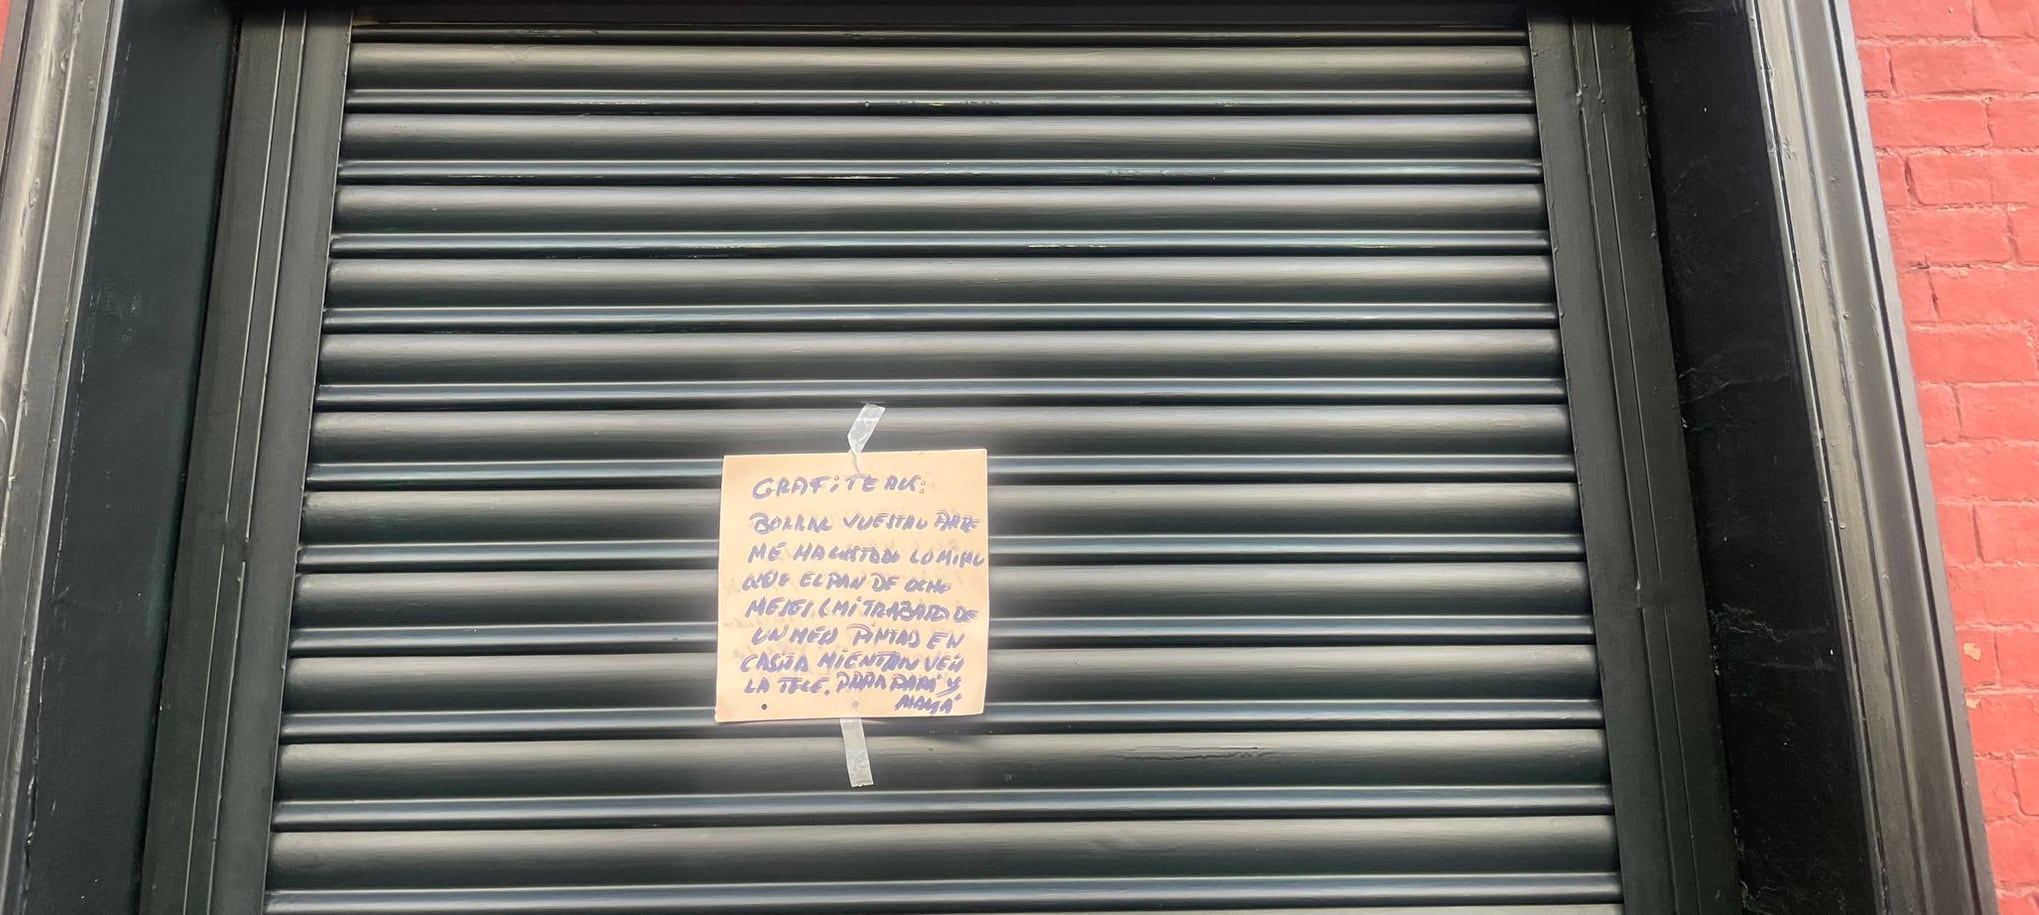 GRAFiTEROS:
BORRAR VUESTRO ARTE
ME HA COSTADO LO MISMO
QUE EL PAN DE OCHO
MESES (MI TRABAJO DE
UN MES) PINTAD EN
CASITA MIENTRAS VEIS
LA TELE. PARA PAPÁ Y
MAMÁ